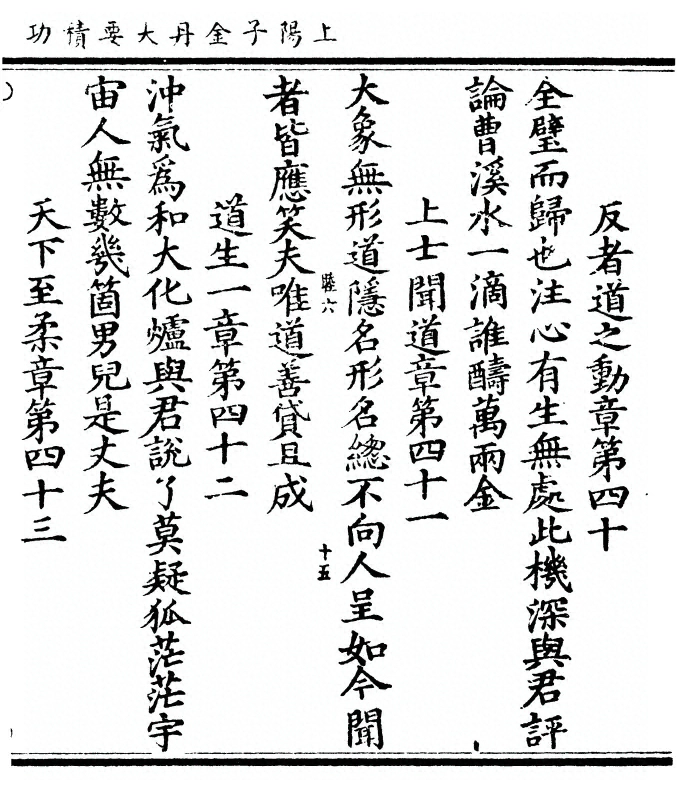 上陽子金丹大要積功
反者道之動章第四十
全璧而歸也注心有生無處此機深與君評
論曹溪水一滴誰醻萬兩金
上士聞道章第四十一
大象無形道隱名形名總不向人呈如今聞
睦六
十五
者皆應笑夫唯道善貸且成
道生一章第四十二
沖氣爲和大化爐與君說了莫疑狐茫茫宇
宙人無數幾箇男兒是丈夫
天下至柔章第四十三